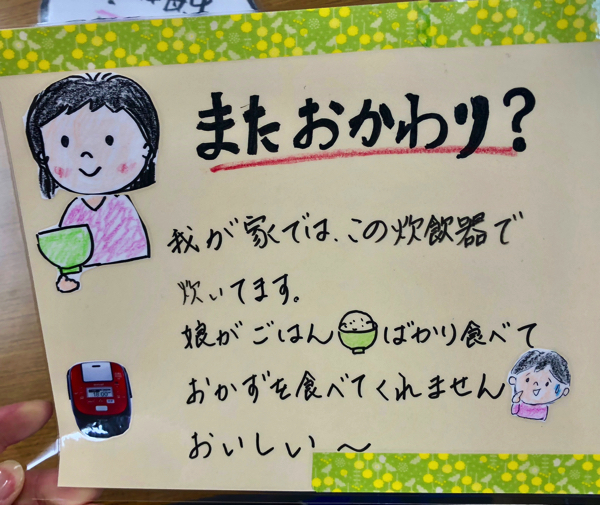 またおかわり?
我が家では、この炊飯器で
炊いてます。
娘がごはんばかり食べて
おかずを食べてくれません
おいしい〜